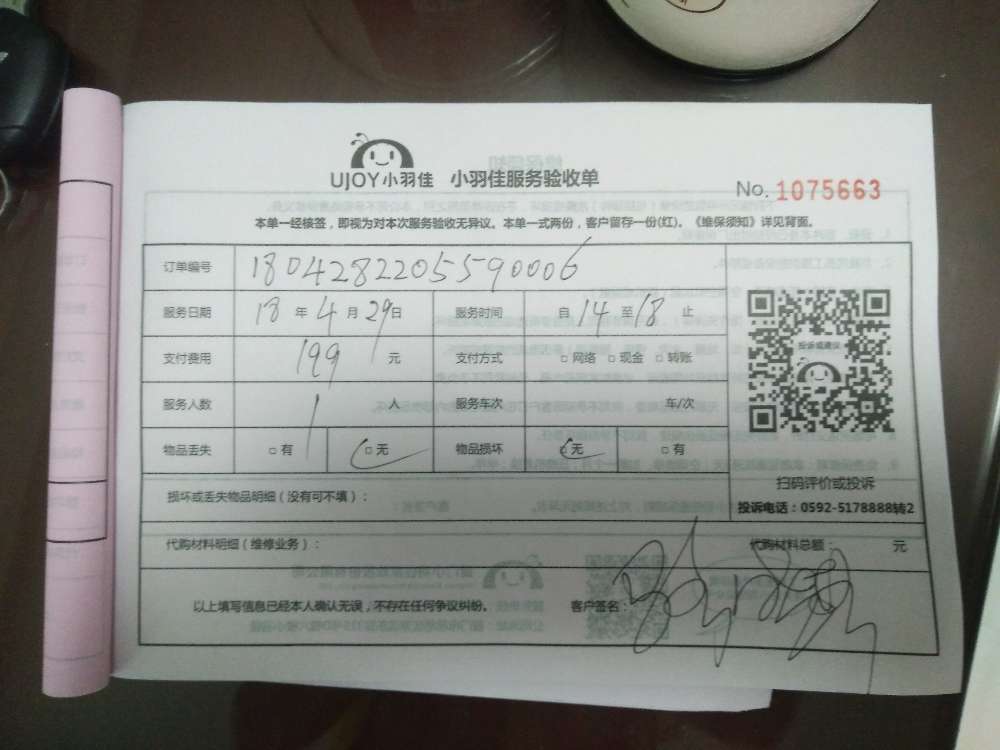 UJOY小羽佳 小羽佳服务验收单
No. 1075663
本单一经核签，即视为对本次服务验收无异议。本单一式两份，客户留存一份(红)。《维保须知》详见背面。
订单编号 1804282205590006
服务日期 18 年 4 月 29 日 服务时间 自 14 至 18 止
支付费用 199 元 支付方式 □ 网络 □ 现金 □ 转账
服务人数 1 人 服务车次 车/次
物品丢失 □ 有 □ 无 物品损坏 □ 无 □ 有
投诉或建议
扫码评价或投诉
投诉电话：0592-5178888转2
损坏或丢失物品明细（没有可不填）：
代购材料明细（维修业务）： 代购材料总额： 元
以上填写信息已经本人确认无误，不存在任何争议纠纷。 客户签名：